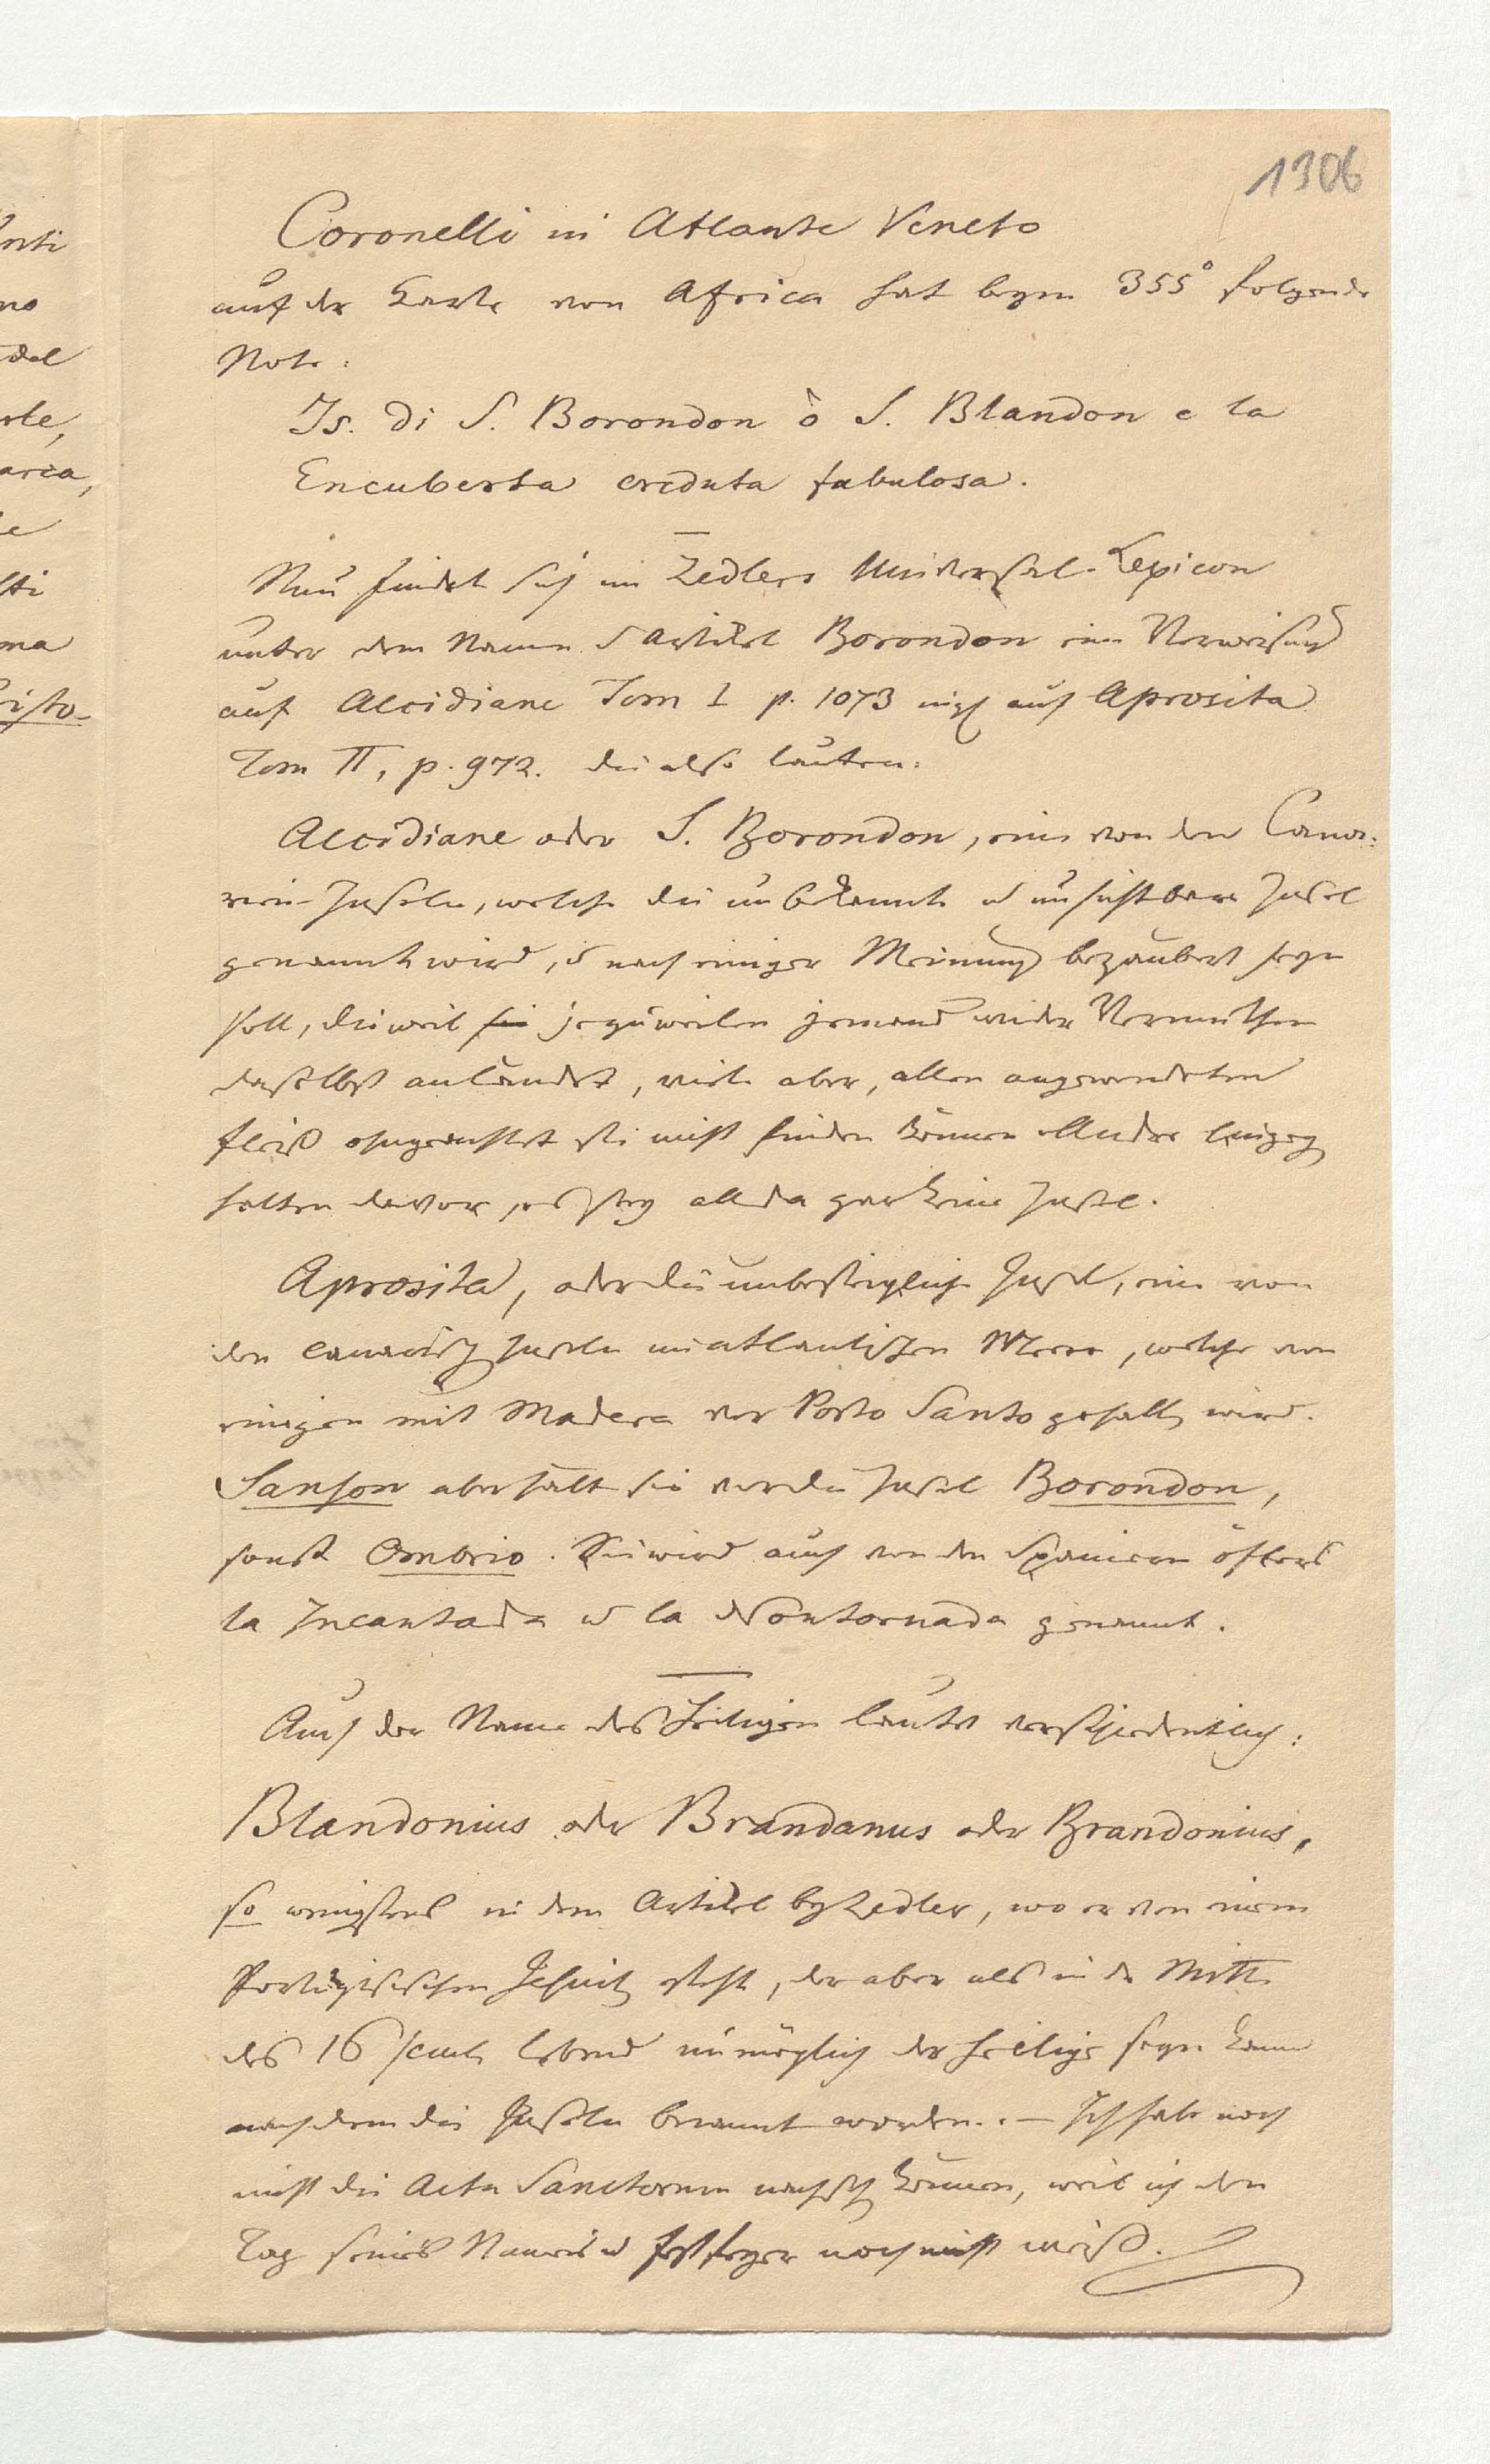 1306
Coronelli in Atlante Veneto
auf der Karte von Africa hat beym 355° folgende
Note:
Is. di S. Borondon ò S. Blandon e la
Encuberta creduta fabulosa.
Nun findet sich im Zedlers Universal-Lexicon
unter dem Namen u Artikel Borondon eine Verweisung
auf Alcidiane Tom I p. 1073 auf Aprosita
Tom II, p. 972. die also lauten:
Alcidiane oder S. Borondon, eine von den Cana:
rien-Inseln, welche die unbekannte u unsichtbare Insel
genannt wird, u nach einiger Meinung bezaubert seyn
soll, dieweil sie jezuweilen jemand wider Vermuthen
daselbst anländet, viele aber, allen angewendeten
Fleiß ohngeachtet sie nicht finden können. Andre hingeg
halten davor, es sey allda gar keine Insel.
Aprosita, oder die unbesteigliche Insel, eine von
den canarisch Inseln im atlantischen Meere, welche von
einigen mit Madera vor Porto Santo gehalt wird.
Sanson aber hält sie vor die Insel Borondon,
sonst Ombrio. Sie wird auch von den Spaniern öfters
la Incantada u la Nontornada genannt.
Auch der Name des Heiligen lautet verschiedentlich:
Blandonius oder Brandanus oder Brandonius,
so wenigstens in dem Artikel by Zedler, wo er von einem
Portugisischen Jesuit steht, der aber als in der Mitte
des 16 lebend unmöglich der Heilige seyn kann
nach dem die Inseln benannt worden. – Ich habe noch
nicht die Acta Sanctorum nachseh können, weil ich den
Tag seines Namens u Festfeyer noch nicht weiß.
nti
no
del
rte,
area,
ie
tti
ma
isto-